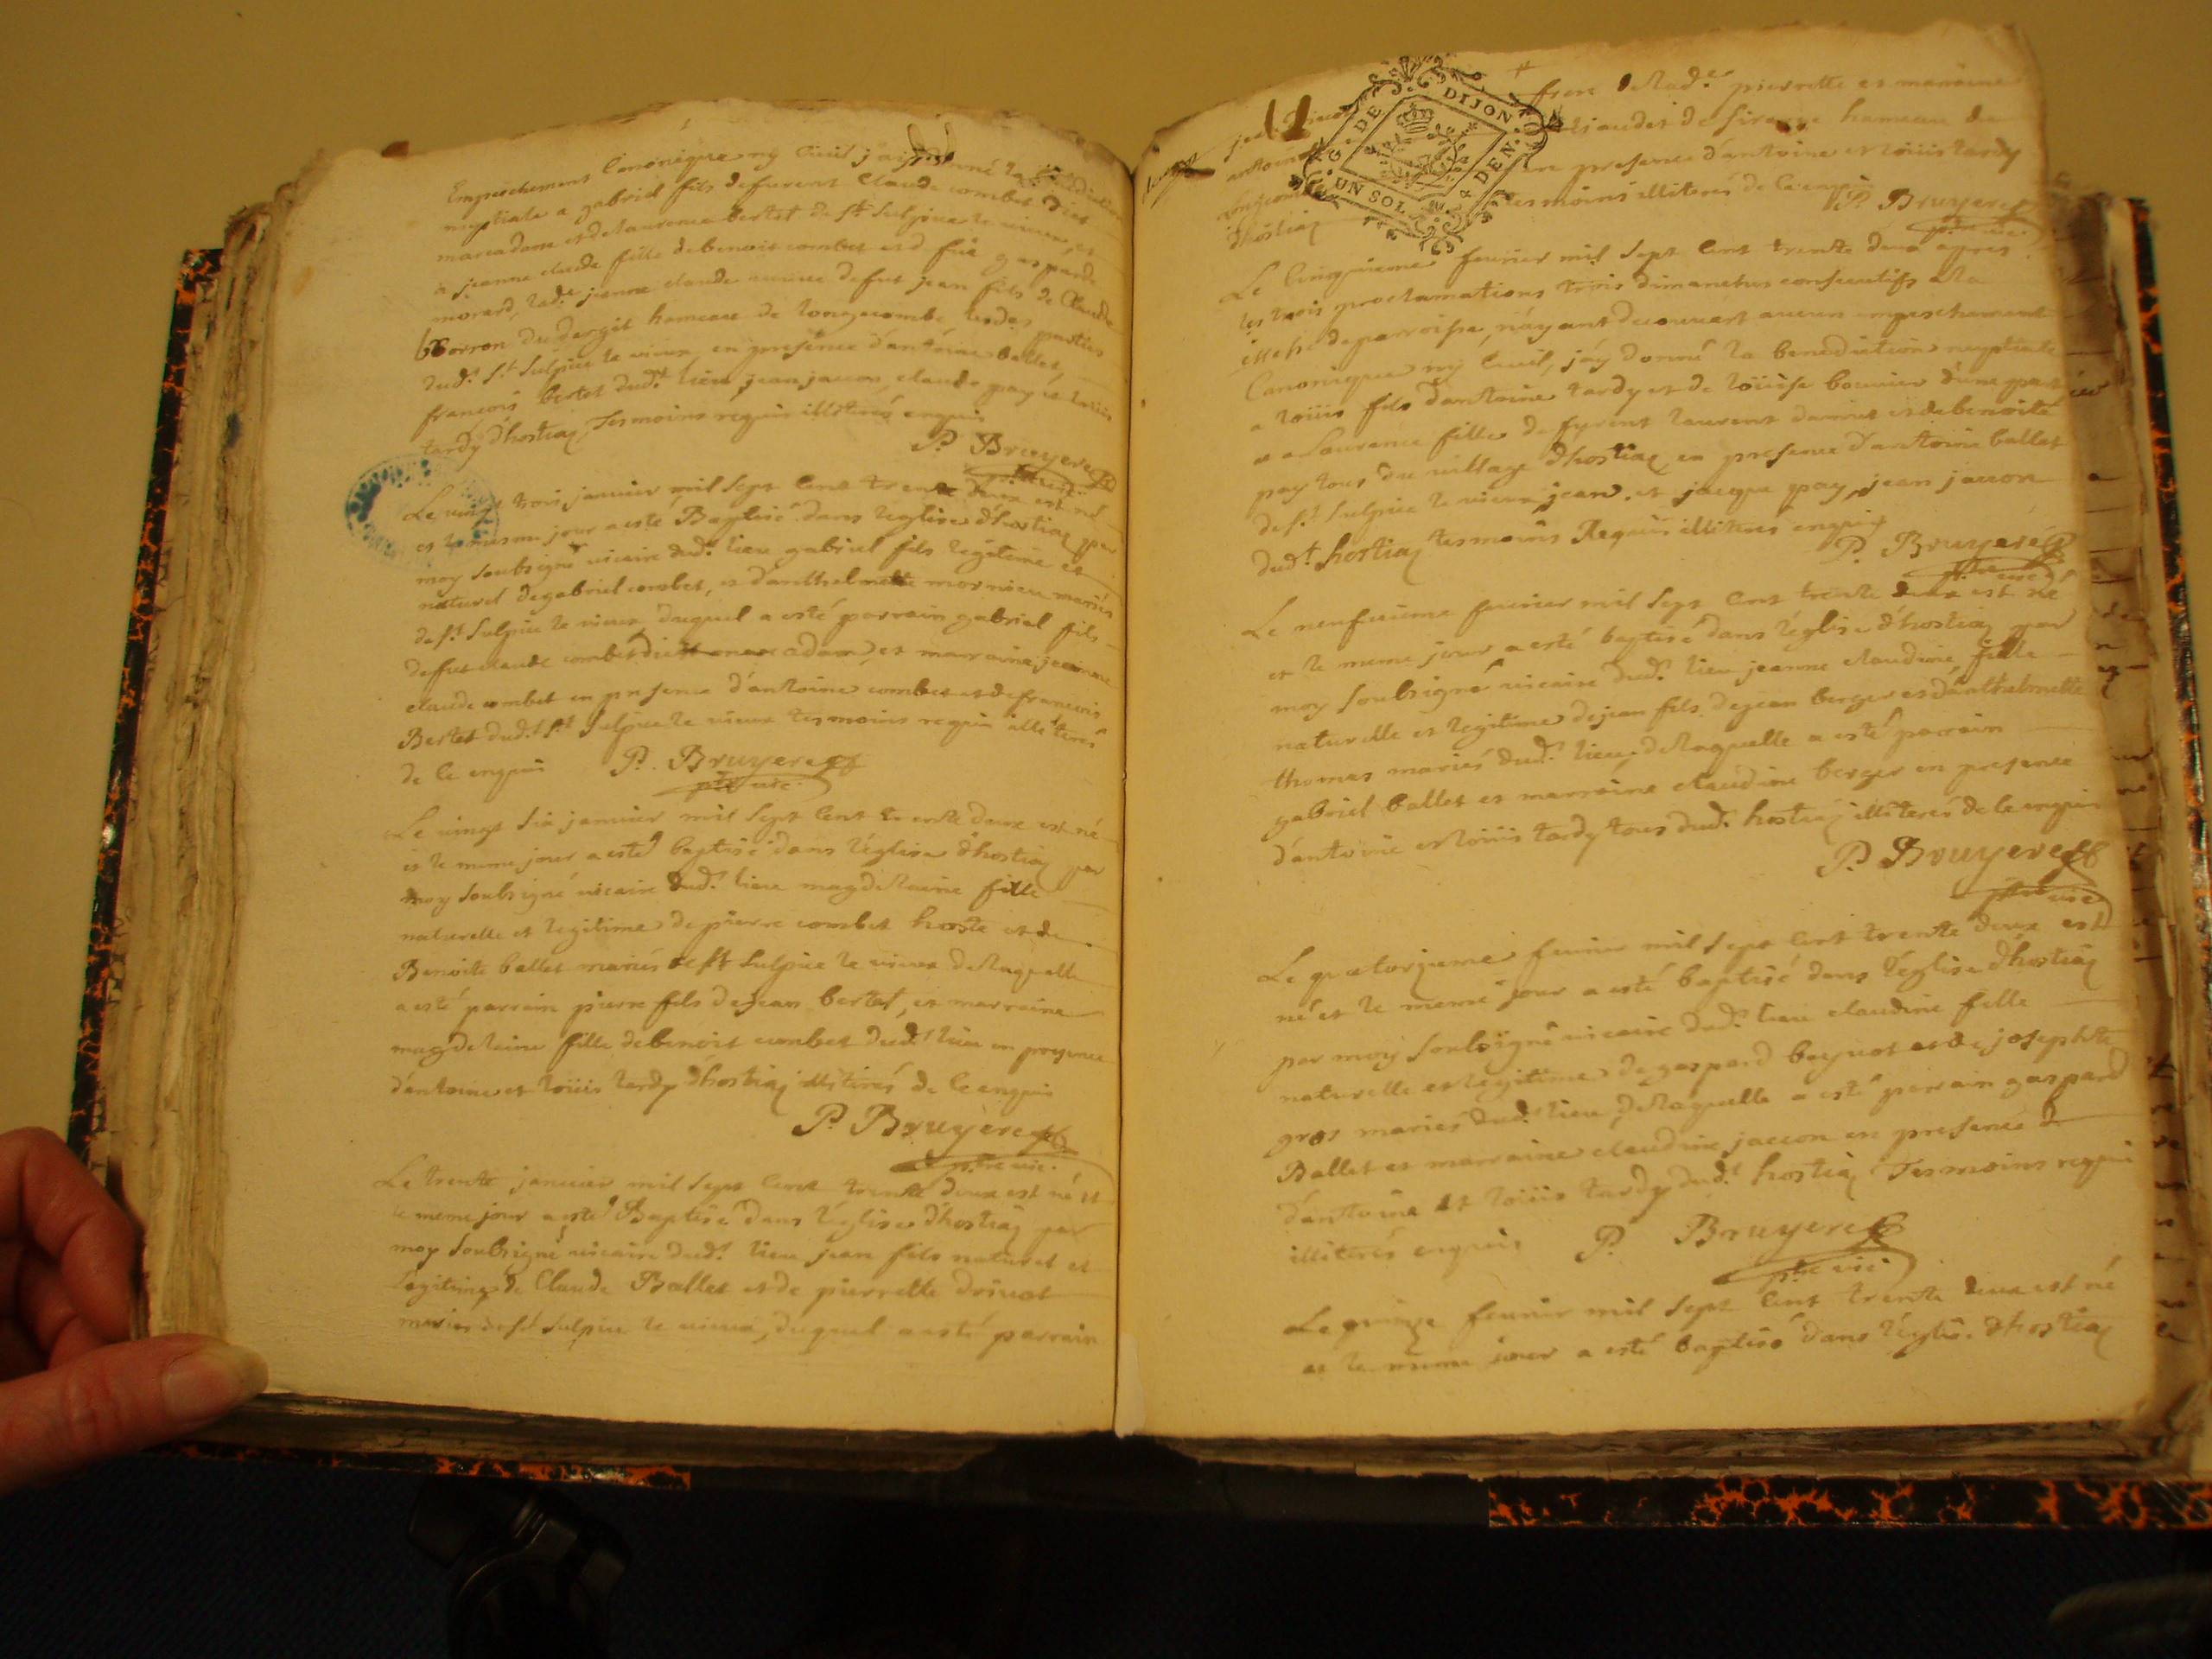 Empeschement Canonique ny Civil j'ay donné la benediction
nuptiale a gabriel fils defurent Claude combet dict
marcadam et delaurence bertet de St Sulpice le vieux, et
a jeanne claude fille debenoit combet et d fue gasparde
morard, lade jeanne claude veuve defut jean fils de Claude
Borron dudergit hameau de longecombe lesdes parties
dudt St Sulpice le vieux, en presence d'antoine ballet,
francois bertet dudt lieu jean jacon, claude pay et louis
tardy d'hostiaz, Tesmoins requis illiterés enquis
P. Bruyere
ptre vic.
Le vingt trois janvier mil sept Cent trente deux est né
et le mesme jour a esté Baptisé dans l'eglise d'hostiaz par
moy soubsigné vicaire dudt lieu gabriel fils legitime et
naturel degabriel combet, et d'anthelmette mornieu mariés
de St Sulpice le vieux, duquel a esté parrain gabriel fils
defut claude combet dict marcadam, et marraine jeanne
claude combet en presence d'antoine combet et defrancois
Bertet dudt St Sulpice le vieux tesmoins requis illiterés
de ce enquis P. Bruyere
ptre vic.
Le vingt six janvier mil sept Cent trente deux est né
et le meme jour a esté baptisé dans l'église d'hostiaz par
moy soubsigné vicaire dudt lieu magdelaine fille
naturelle et legitime de pierre combet hoste et de
Benoite ballet mariés de St Sulpice le vieux delaquelle
a esté parrain pierre fils dejean bertet, et marraine
magdelaine fille debenoit combet dudt lieu en presence
d'antoine et louis tardy d'hostiaz illiterés de ce enquis
P. Bruyere
ptre vic.
Le trente janvier mil sept Cent trente deux est né et
le meme jour a esté Baptisé dans l'église d'hostiaz par
moy soubsigné vicaire dudt lieu jean fils naturel et
legitime de Claude Ballet et de pierrette drivot
mariés de St Sulpice le vieux, duquel a esté parrain
11
G. DE DIJON
UN SOL 4 DEN.
frere delade pierrette et marraine
hameau de
presence d'antoine et louis tardy
d'hostiaz tesmoins illiterés de ce enquis
P. Bruyere
ptre vic.
Le Cinquieme fevrier mil sept Cent trente deux apres
les trois proclamations trois dimanches consecutifs a la
messe de parroisse, n'ayant decouvert aucun empeschement
Canonique ny Civil, j'ay donné la benediction nuptiale
a louis fils d'antoine tardy et de louise bonnier d'une part
et a Laurence fille de furent laurent et debenoite
pay tous du village d'hostiaz, en presence d'antoine ballet
de St Sulpice le vieux, jean, et jacque pay, jean jacon
dudt hostiaz tesmoins Requis illiterés enquis
P. Bruyere
ptre vic.
Le neufvieme fevrier mil sept Cent trente deux est né
et le meme jour a esté baptisé dans l'église d'hostiaz par
moy soubsigné vicaire dudt lieu jeanne claudine, fille
naturelle et legitime dejean fils dejean berger et d'anthelmette
thomas mariés dudt lieu, delaquelle a esté parrain
gabriel ballet et marraine claudine berger en presence
d'antoine et louis tardy tous dudt hostiaz illiterés de ce enquis
P. Bruyere
ptre vic.
Le quatorzieme fevrier mil sept Cent trente deux est
né et le meme jour a esté baptisé dans l'église d'hostiaz
par moy soubsigné vicaire dudt lieu claudine fille
naturelle et legitime de gaspard et de josephte
gros mariés dudt lieu, delaquelle a esté parrain gaspard
Ballet et marraine claudine jacon en presence de
d'antoine et louis tardy dudt hostiaz Tesmoins requis
illiterés enquis P. Bruyere
ptre vic.
Le quinze fevrier mil sept Cent trente deux est né
et le meme jour a esté baptisé dans l'église d'hostiaz